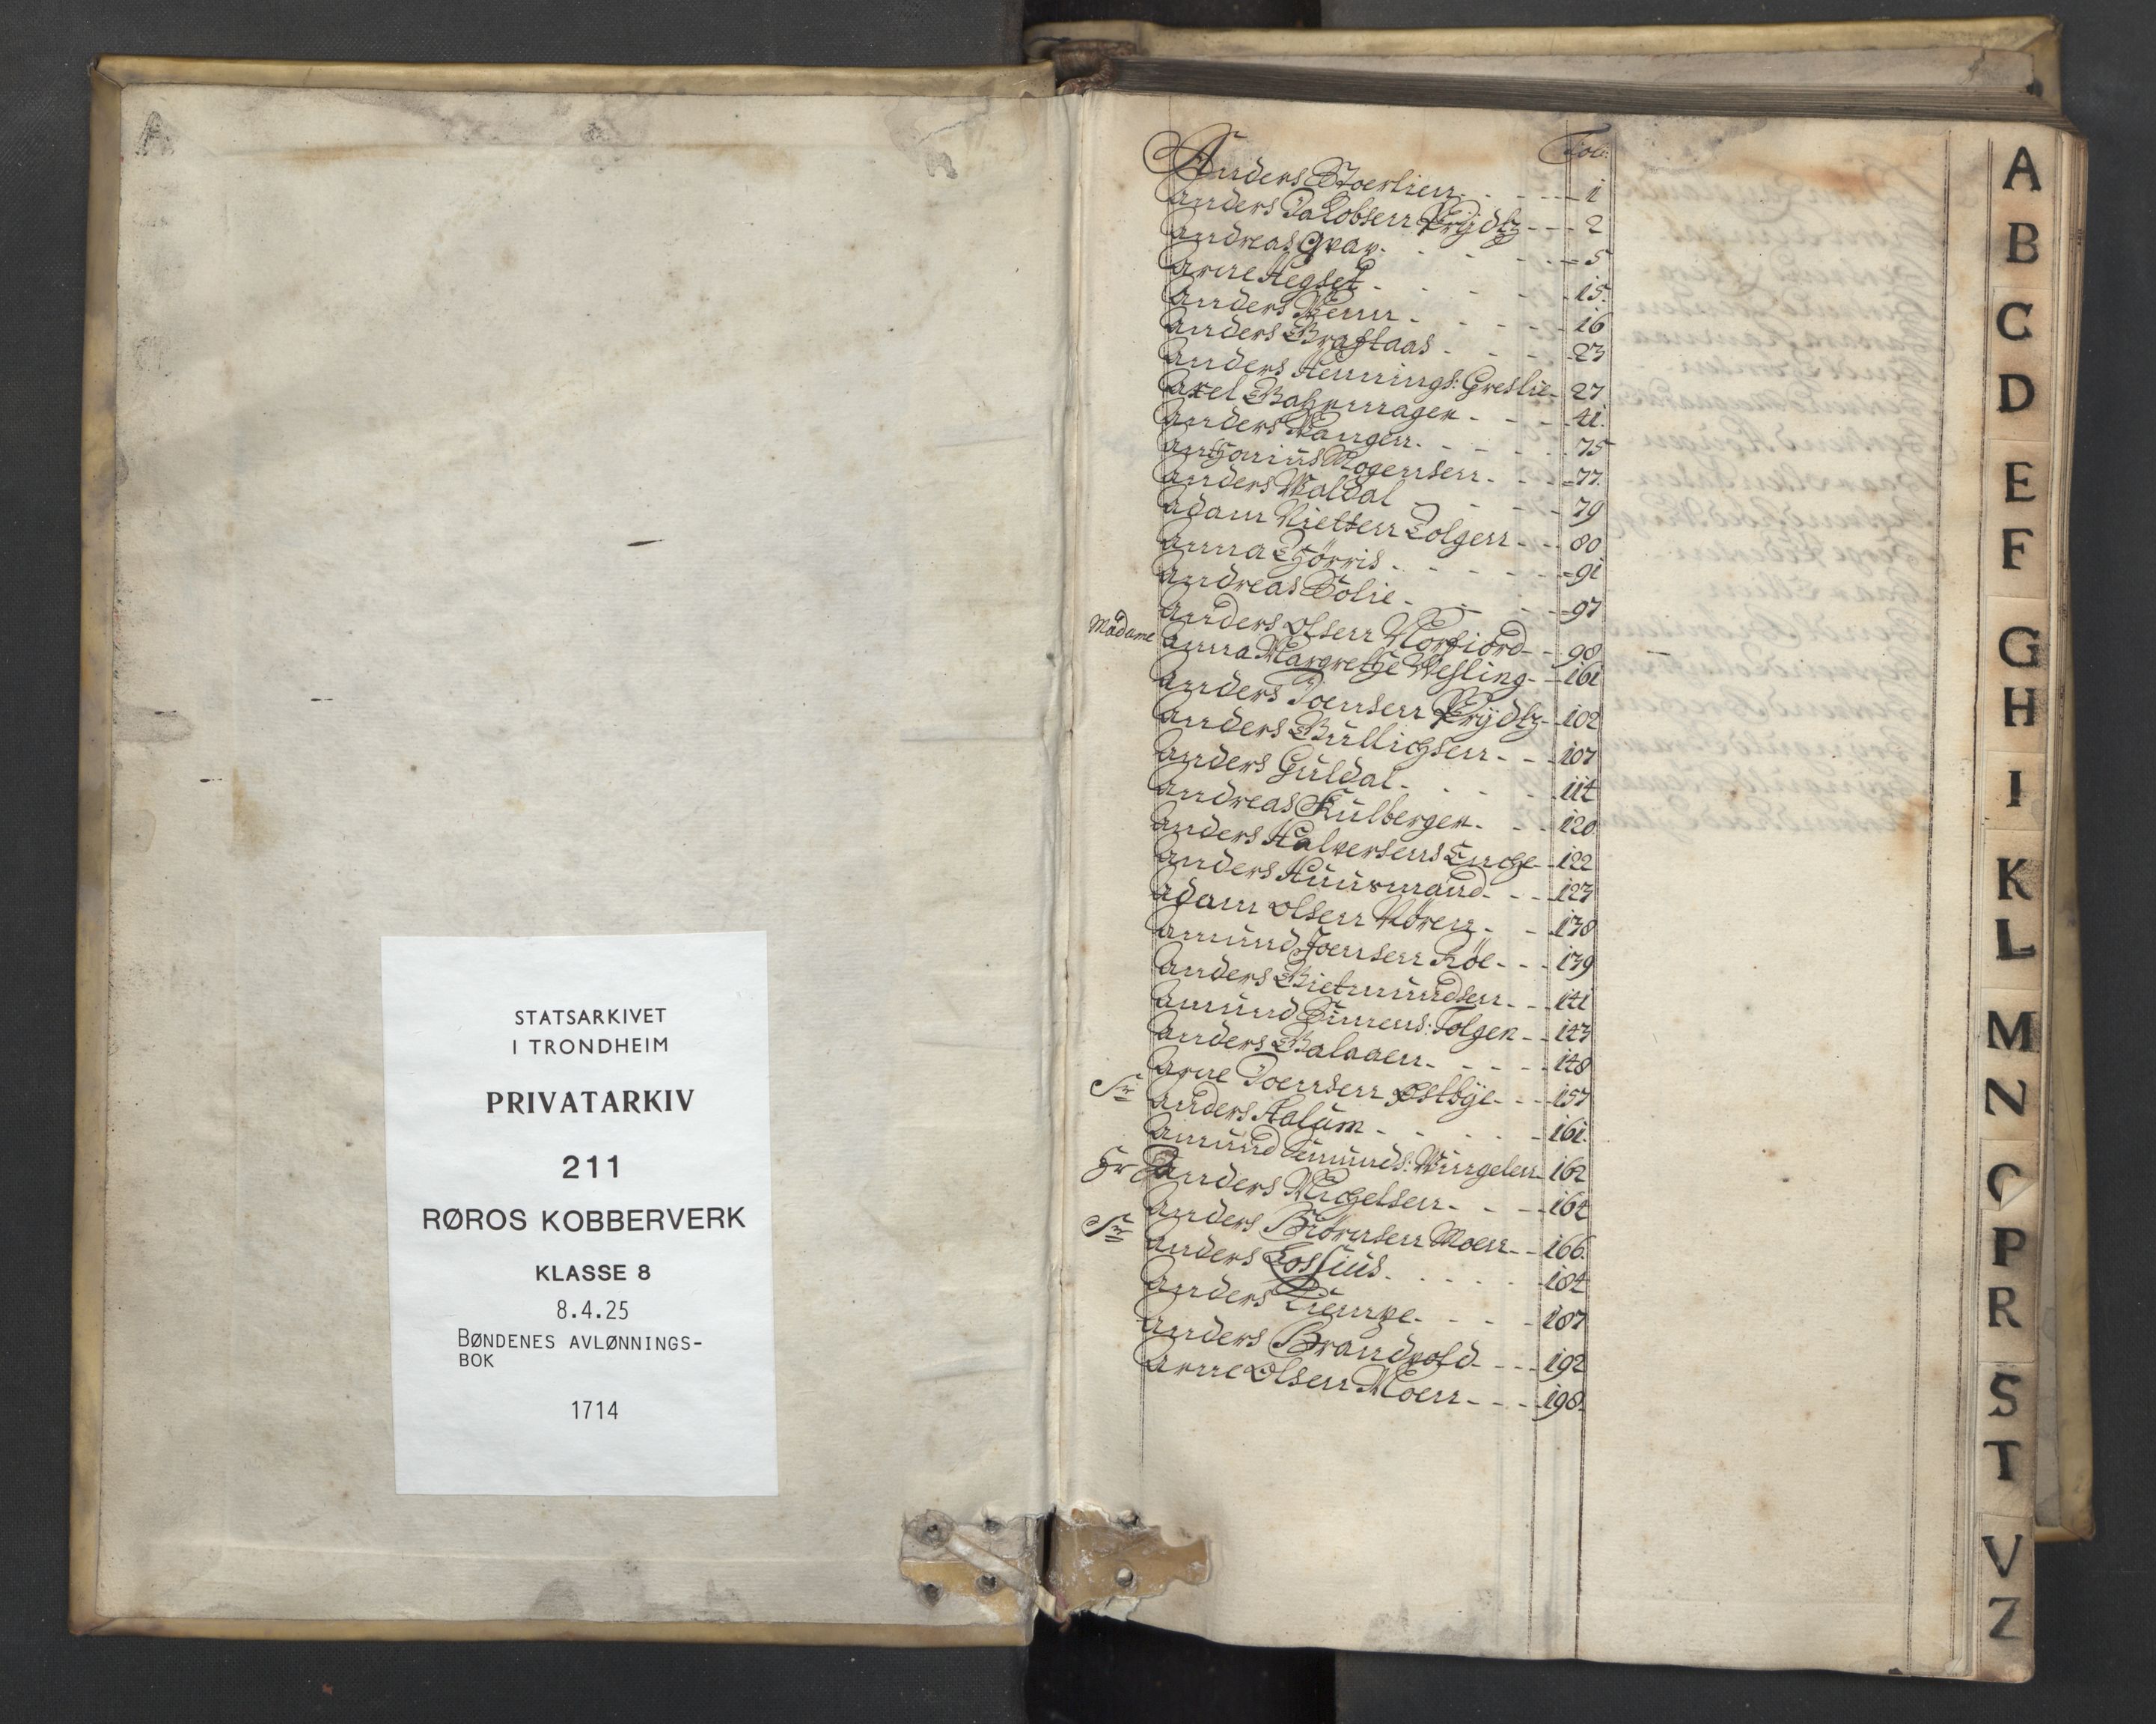 STATSARKIVET
I TRONDHEIM
PRIVATARKIV
211
RØROS KOBBERVERK
KLASSE 8
8.4.25
BØNDENES AVLØNNINGS-
BOK
1714
Fol:
Anders Stoerlien - - - 1
Anders Jakobsen Prÿdtz - - - 2
Andreas Grav - - - 5
Arne Hegset - - - 15.
Anders Wenn - - - 16
Anders Graftaas - - - 23
Anders Hennings: Greslie - 27
Axel Bahnmager - - - 41.
Anders Wangen - - - 75
Anthonius Mogensen - - - 77.
Anders Waldal - - - 79
Adam Nielsen Tolgen - - - 80
Anna Thörris - - - 91
Andreas Solie - - - 97
Anders Olsen Norfiord - - 98
Madame Anna Margrethe Wesling - - 101
Anders Joensen Prÿdtz - - 102
Anders Bullichsen - - - 107
Anders Guldal - - - 114
Andreas Kulberger - - - 120.
Anders Halversens Enche - - 122
Anders Huusmand - - - 127
Adam Olsen Wören - - 138
Amund Joensen Röe - - - 139
Anders Bietmundsen - - 141
Amund Simens: Tolgen - - 143
Anders Balaaen - - - 148
Arne Joensen Østbÿe - - - 157
Sr Anders Aalum - - - 161.
Amund Amunds: Wingelen - 162
Hr Anders Michelsen - - - 164
Anders Biörnsen Moen - - 166.
Sr Anders Lossius - - - 184
Anders - - - 187
Anders Brandvold - - - 192
Arne Olsen Moen - - - 198.
A
B
C
D
E
F
G
H
I
K
L
M
N
O
P
R
S
T
V
Z